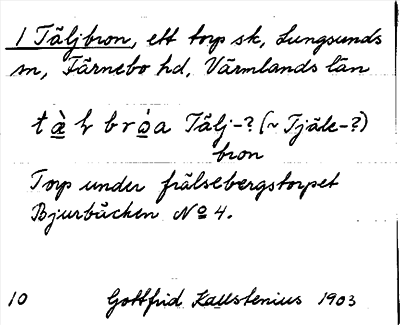 1 Täljbron, ett torp sk, Lungsunds
sn, Färnebo hd, Värmlands län
Tälj-? (~ Tjäle-?)
bron
Torp under frälsebergstorpet
Bjurbäcken No 4.
10 Gottfrid Kallstenius 1903